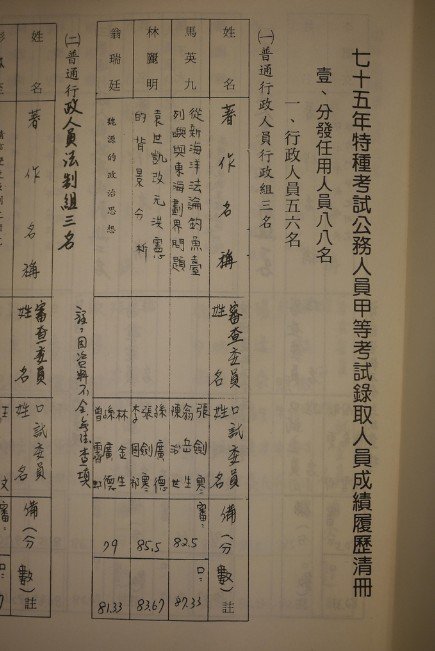 七十五年特種考試公務人員甲等考試錄取人員成績履歷清冊
壹、分發任用人員八八名
一、行政人員五六名
㈠普通行政人員行政組三名
姓名 著作名稱 審查委員姓名 口試委員姓名 備(分數)註
馬英九 從新海洋法論釣魚臺列嶼與東海劃界問題 張劍寒 翁岳生 陳治世 審:82.5 口:87.33
林鑨明 袁世凱改元洪憲的背景分析 孫廣德 張劍寒 李國祁 85.5 83.67
翁瑞廷 魏源的政治思想 林金生 孫廣德 79 81.33
註:因資料不全無法查填
㈡普通行政人員法制組三名
姓名 著作名稱 審查委員姓名 口試委員姓名 備(分數)註